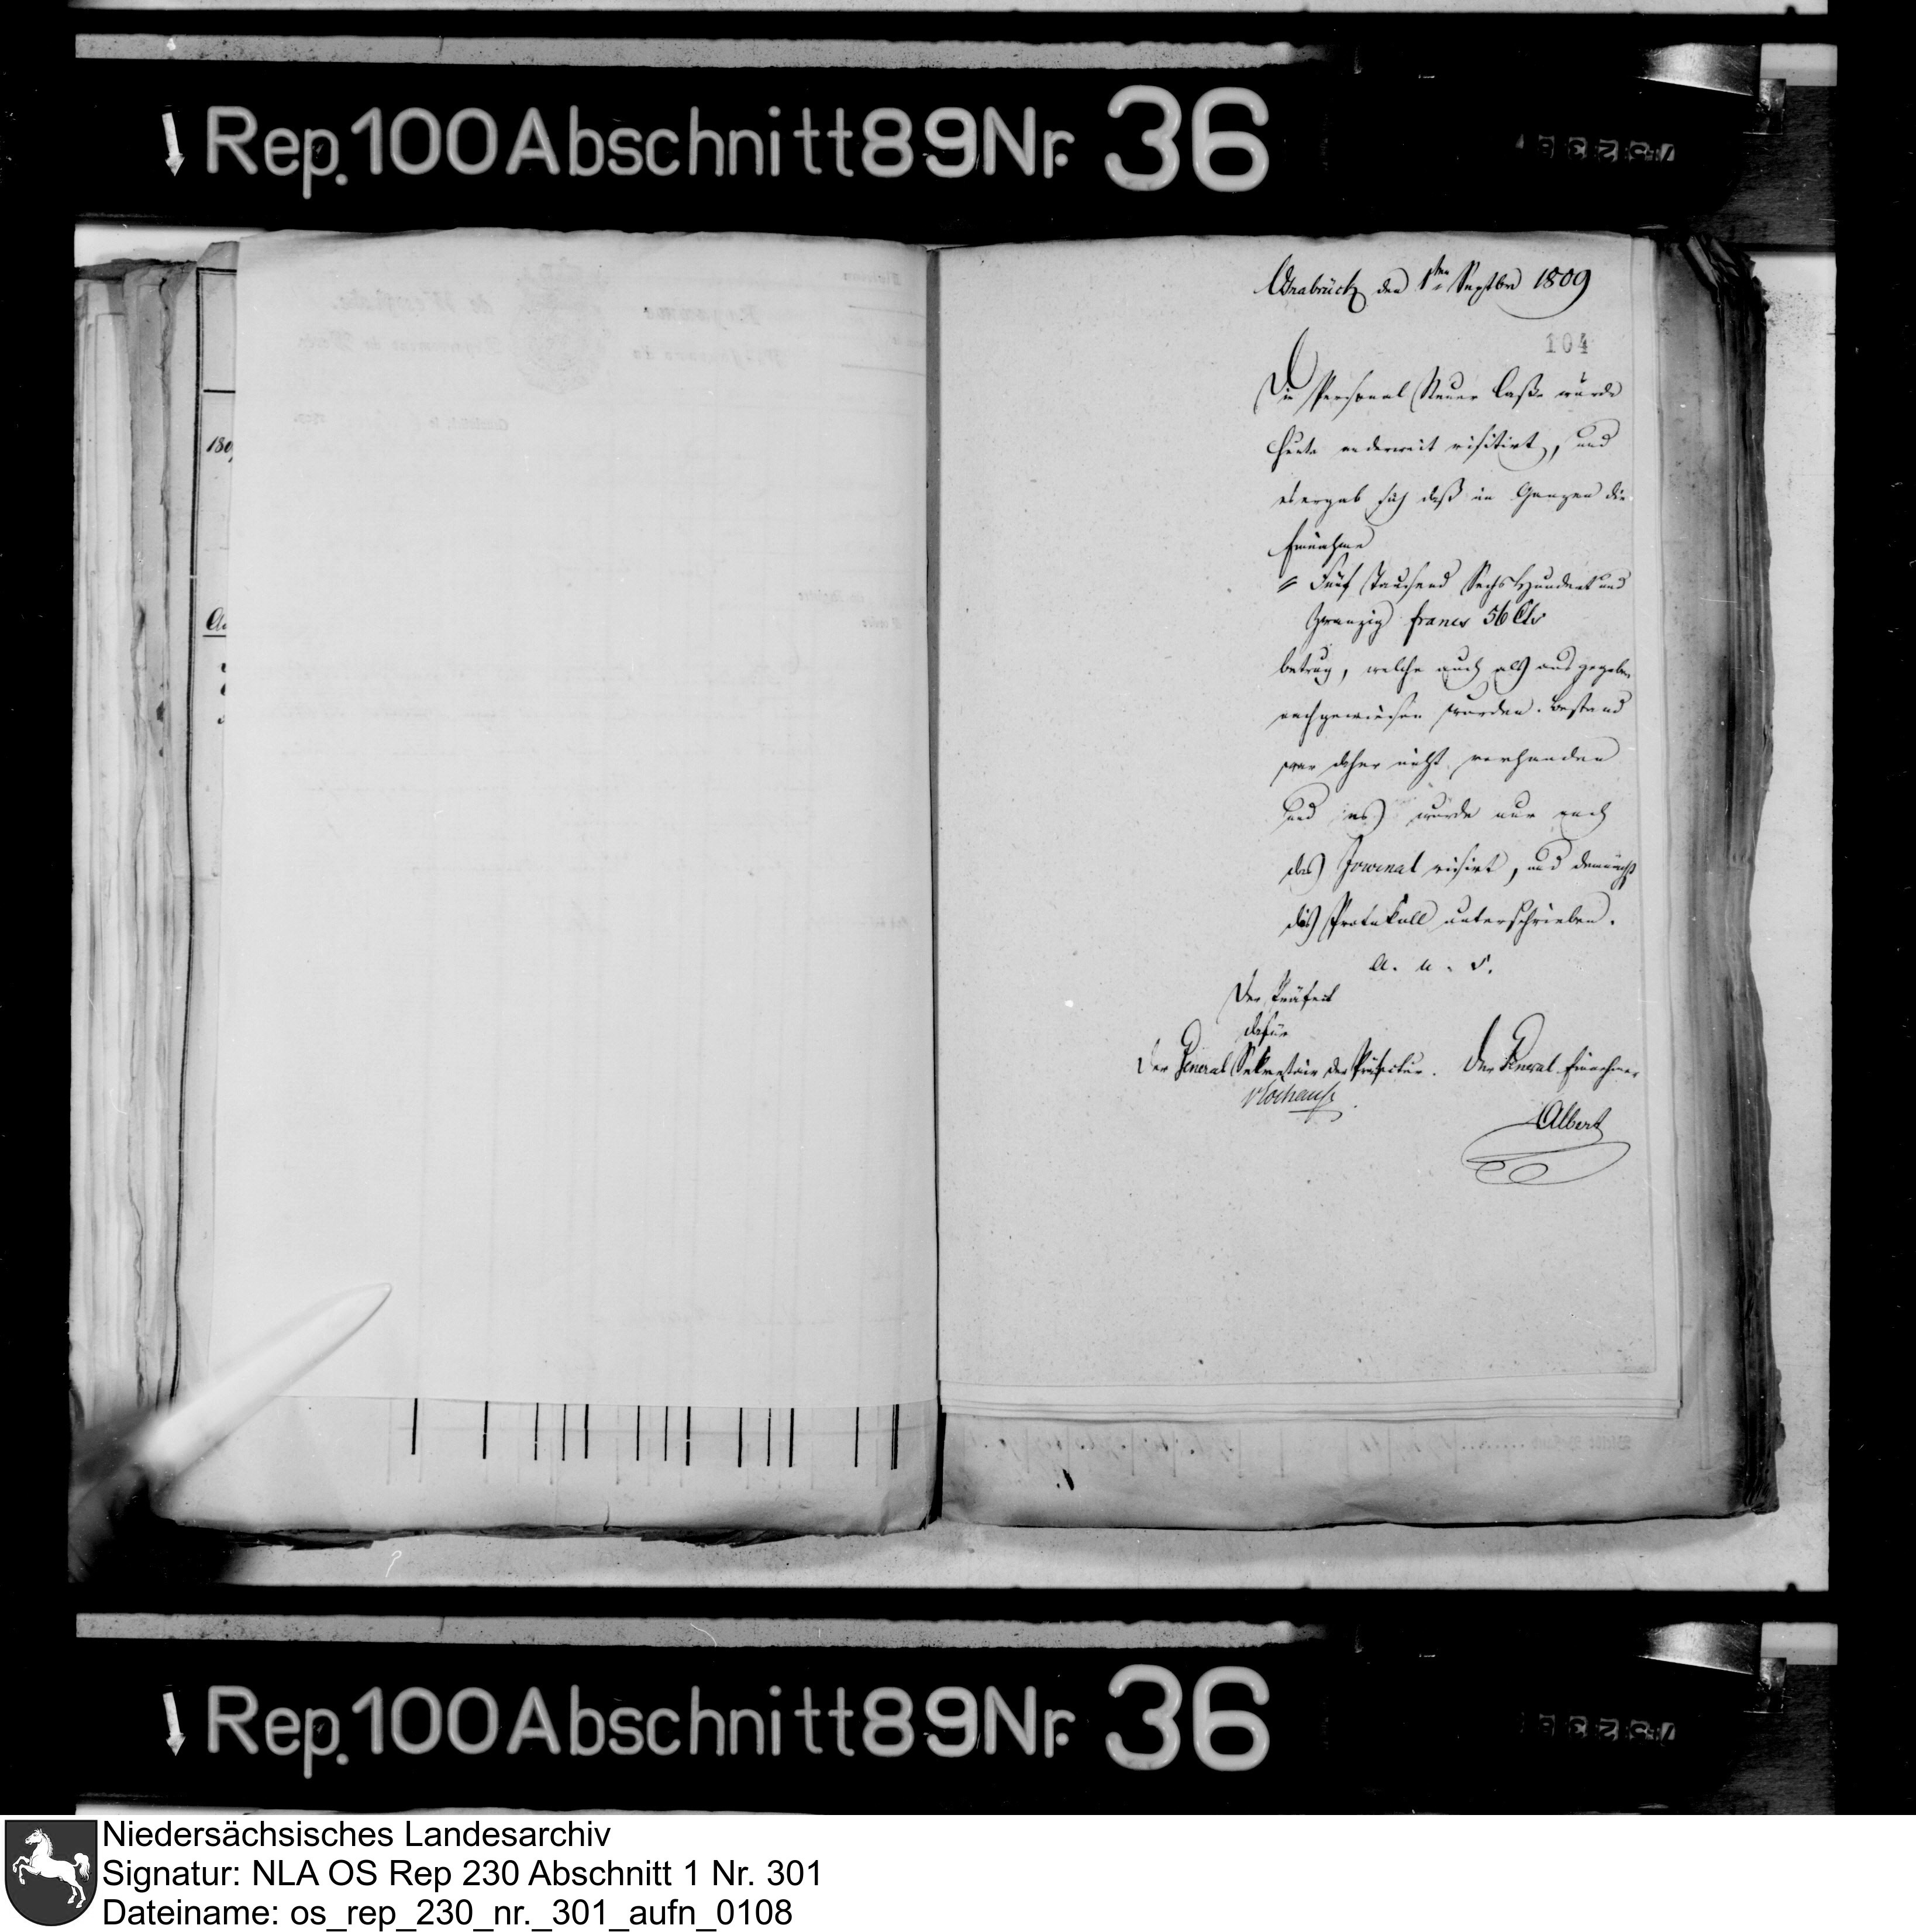 Rep. 100 Abschnitt 89 Nr. 36
Osnabrück den 1ten Septbr 1809
104
Die Personal Steuer Casse wurde
heute anderweit visitirt, und
es ergab sich daß im Ganzen die
Einnahme
Fünf Tausend Sechs Hundert und
Zwanzig francs 56 Cts
betrug, welche auch als ausgegeben
nachgewiesen wurden. Bestand
war daher nicht vorhanden
und es wurde nur noch
das Journal visirt, und demnächst
dies Protokoll unterschrieben.
A. u. S.
Der Präfect
dafür
Der General Sekretair der Präfectur. Der General Einnehmer
Albert
180
Rep. 100 Abschnitt 89 Nr. 36
Niedersächsisches Landesarchiv
Signatur: NLA OS Rep 230 Abschnitt 1 Nr. 301
Dateiname: os_rep_230_nr._301_aufn_0108